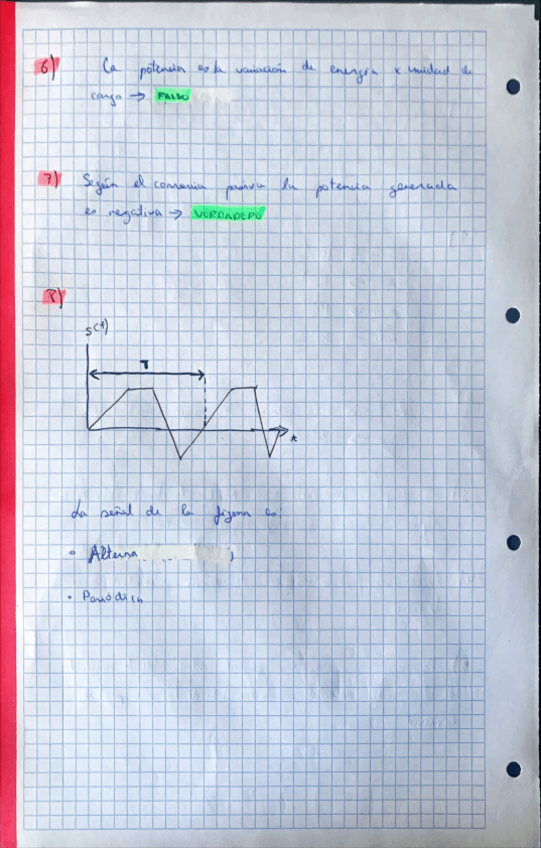 6) La potencia es la variación de energía x unidad de
carga → FALSO
7) Según el convenio pasivo la potencia generada
es negativa → VERDADERO
8)
s(t)
T
t
La señal de la figura es:
• Alterna
• Periódica